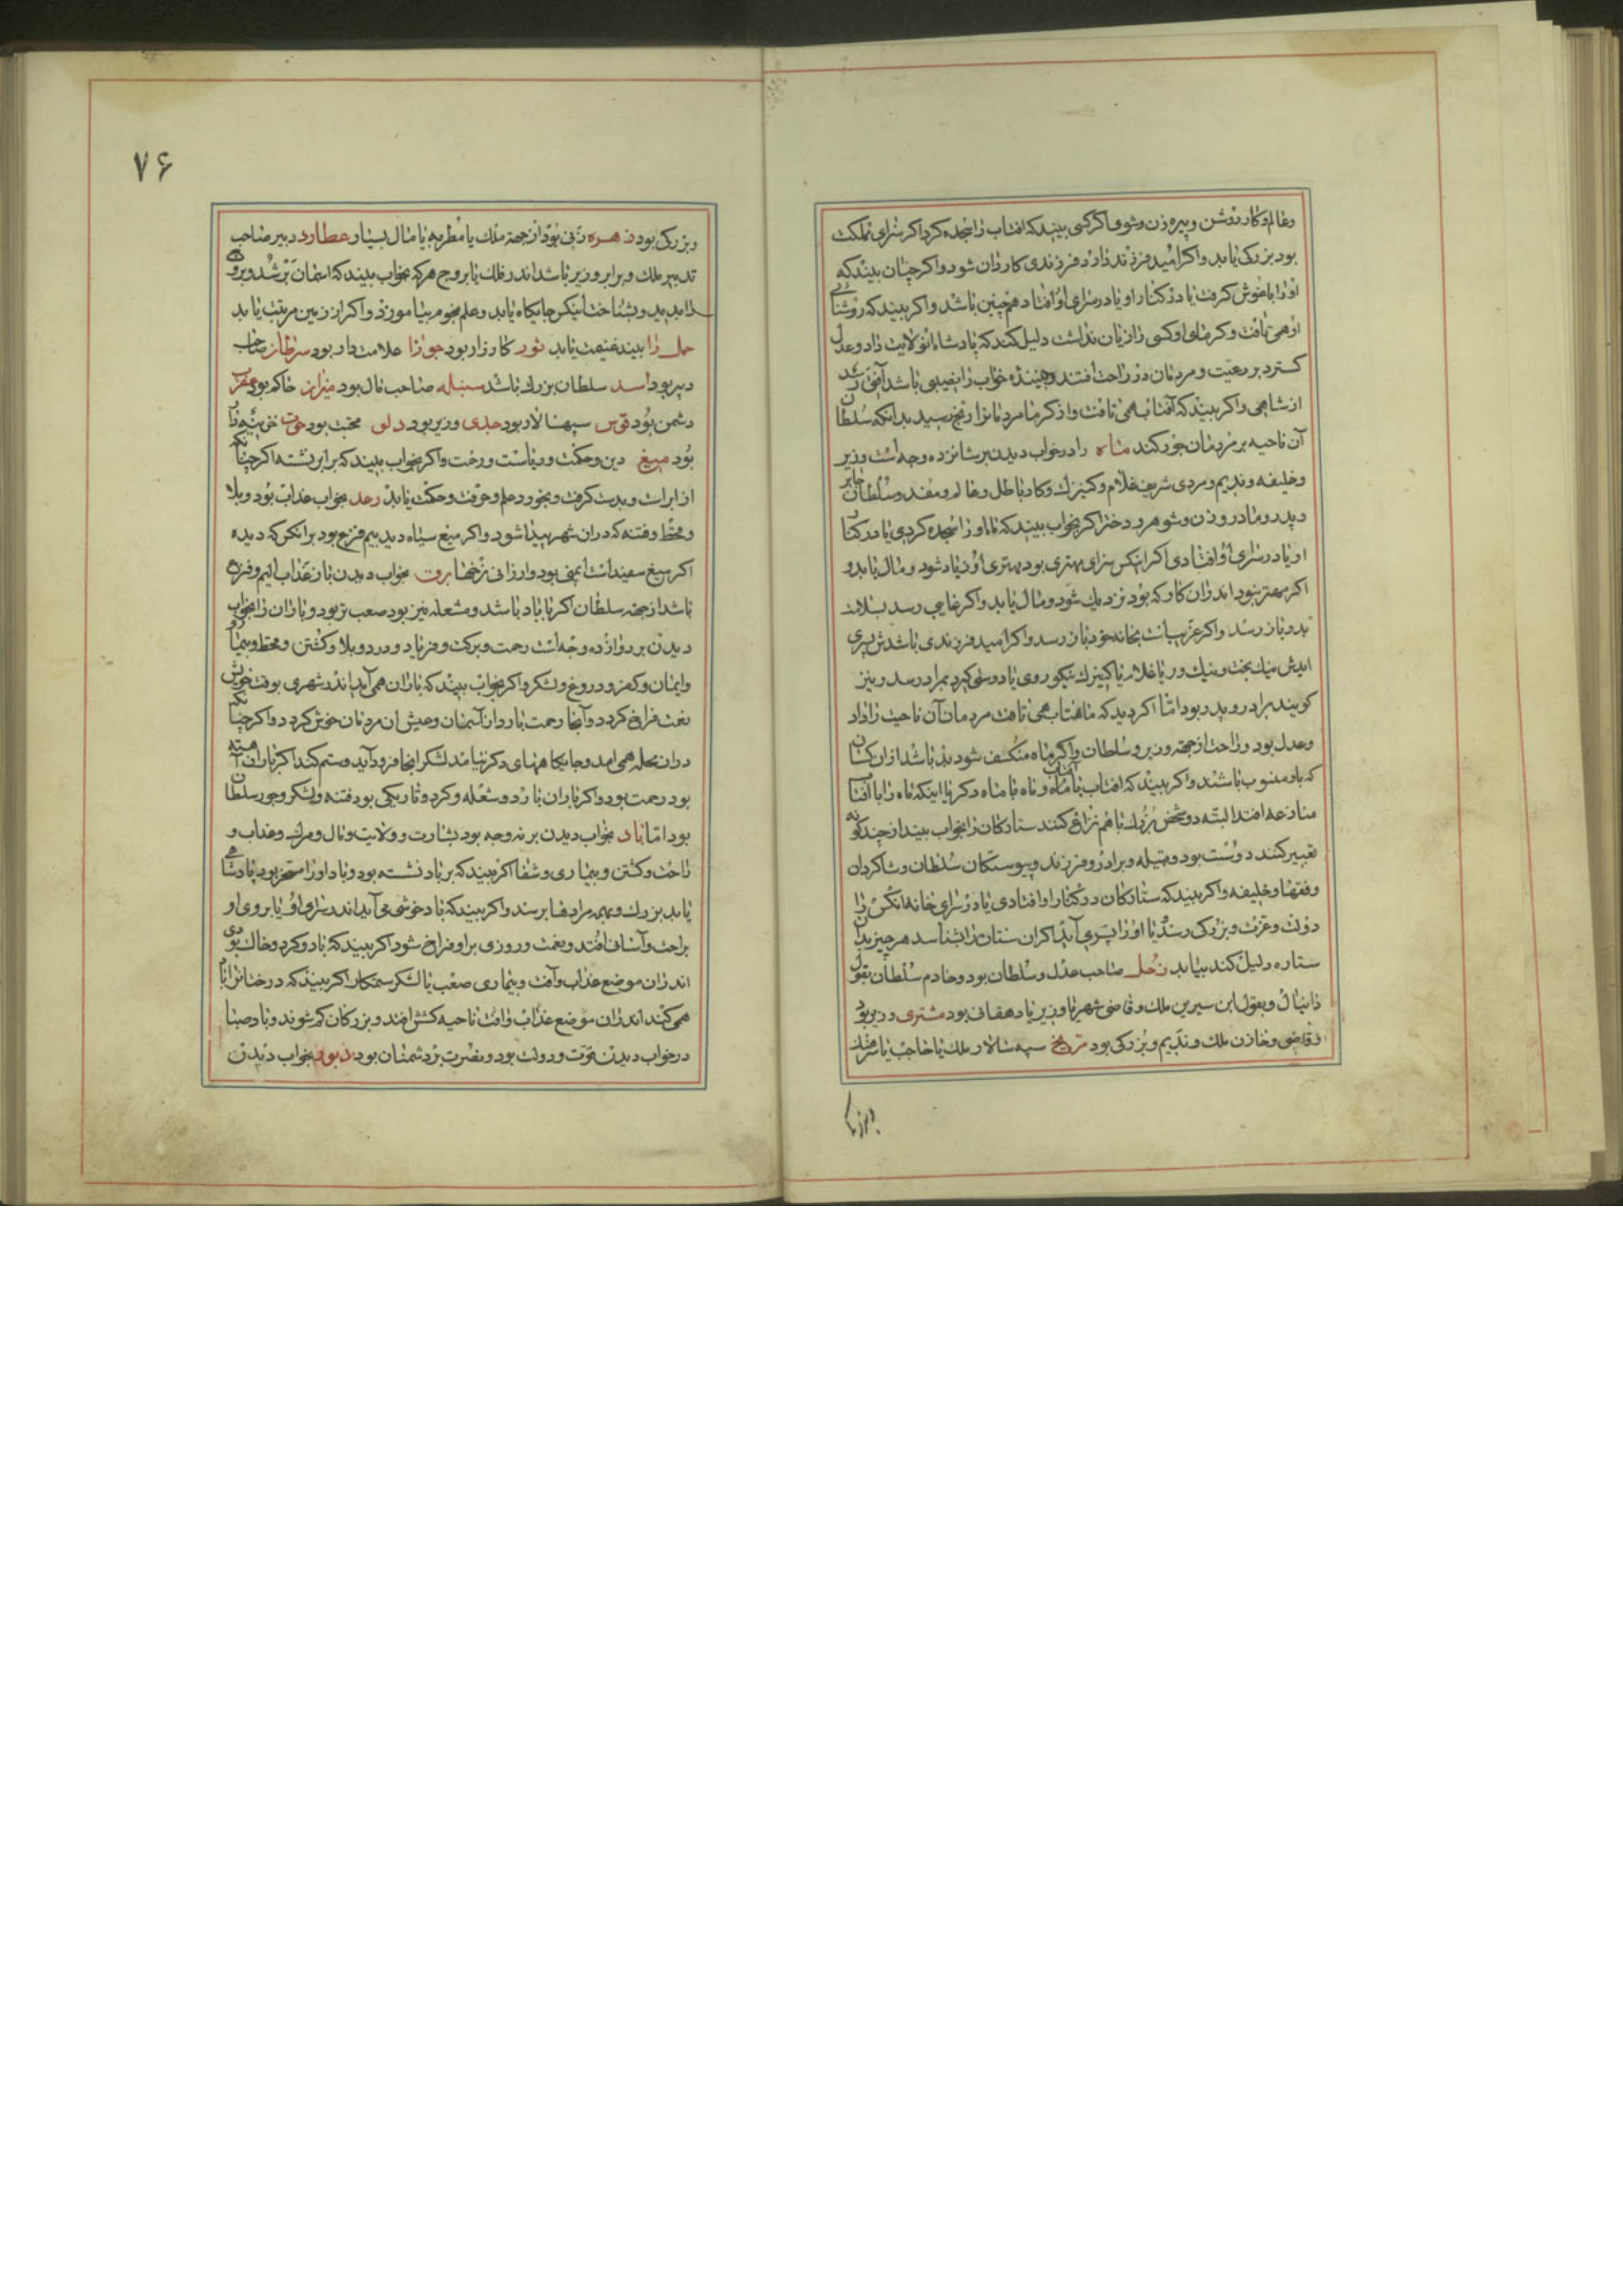 وعالم و کار روشن و پیره زن و شوی اکر کسی بیند که افتاب را سجده کرد اکر سزای مملکت
بود بزرکی یابد واکر امید فرزند دارد فرزندی کاردان شود واکر چنان بیند که
او را باغوش کرفت یا در کنار او یا در سرای او افتاد همچنین باشد واکر بیند که روشنائی
او همی تافت و کرمای او کسی را زیان نداشت دلیل کند که پادشاه انولایت داد وعدل
کسترد بر رعیت و مردمان در راحت افتند وبیننده خواب را نصیبی باشد
از شاهی واکر بیند که آفتاب همی تافت واز کرما مردمانرا رنج رسید بدانکه سلطان
آن ناحیه بر مردمان جور کند ماه را در خواب دیدن بر شانزده وجه است وزیر
وخلیفه وندیم و مردی شریف غلام وکنیزک وکار باطل وعالم ومفسد وسلطان جابر
و پدر و مادر و زن و شوهر و دختر اکر بخواب بیند که ماه او را سجده کردی یا در کنار
او یا در سرای او افتادی اکر انکس سزای مهتری بود مهتری او زیاد شود ومال یابد و
اکر مهتر نبود اندران کار که بود نزدیک شود ومال یابد واکر غایبی رسد بسلامت
بدو باز رسد واکر غریب است بخانه خود باز رسد واکر امید فرزندی باشدش پسری
ایدش نیک بخت ونیک ور یا غلام یا کنیزک نیکو روی یا دوستی کیرد بمراد رسد ونیز
کویند برادر و پدر بود امّا اکر دید که ماهتاب همی تافت مردمان آن ناحیت را داد
وعدل بود وراحت از جهة وزیر وسلطان واکر ماه منکسف شود بد باشد از ان کسان
که بدو منسوب باشند واکر بیند که افتاب با ماه وماه با ماه دکر یا اینکه ماه را با آفتاب
منازعه افتد البتّه دو شخص بزرک با هم نزاع کنند ستارکان را بخواب بیند از چند کونه
تعبیر کنند دوست بود وقبیله وبرادر وفرزند وپیوستکان سلطان وشاکردان
وفقها وخلیفه واکر بیند که ستارکان در کنار او افتادی یا در سرای خانه انکس را
دولت وعزت وبزرکی رسد یا او را پسری آید اکر ان ستاره را بشناسد هر چیز بدان
ستاره دلیل کند بیابد زحل صاحب عدل وسلطان بود وخادم سلطان بقول
دانیال وبقول ابن سیرین ملک وقاضی شهر یا وزیر یا دهقانی بود مشتری وزیر بود
وقاضی وخازن ملک وندیم وبزرکی بود مریخ سپه سالار ملک یا حاجب یا سرهنک
۷۶
وبزرکی بود زهره زنی بود از جهة ملک یا مطربه یا مال بسیار عطارد دبیر صاحب
تدبیر ملک وبرابر وزیر باشد اندر فلک یا بروج هر که بخواب بیند که اسمان بر شد
را بدید وبشناخت انکس جایکاه یابد وعلم نجوم بیاموزد واکر از زمین مرتبت یابد
حمل را بیند غنیمت یابد ثور کارزار بود جوزا علامت دار بود سرطان صاحب
دبیر بود اسد سلطان بزرک باشد سنبله صاحب مال بود میزان حاکم بود عقرب
دشمن بود قوس سپهسالار بود جدی وزیر بود دلو محتسب بود حوت خزینه دار
بود میغ دین وحکمت وریاست ورحمت واکر بخواب بیند که بر ابر نشسته اکر چنانکه
از ابر است وبدست کرفت وبخورد علم وحرفت وحکمت یابد رعد بخواب عذاب بود وبلا
وقحط وفتنه که دران شهر پیدا شود واکر میغ سیاه دید بیم وفزع بود بر انکس که دیده
اکر میغ سفید است ایمنی بود وارزانی نرخها برق بخواب دیدن باز عذاب الیم وفزع
باشد از جهة سلطان اکر با باد باشد ومشعله نیز بود صعب تر بود وباران را بخواب
دیدن بر دوازده وجه است رحمت وبرکت وفریاد ودرد وبلا وکشتن وقحط وبیماری
وایمان وکفر ودروغ ولشکر واکر بخواب بیند که باران همی آید اندر شهری بوقت خویش
نعمت فراخ کردد وآنجا رحمت بارد از آسمان وعیش ان مردمان خوش کردد واکر چنانکه
دران محله همی امد وجایکاههای دکر نیامد لشکر انجا فرود آید وستم کند اکر باران آهسته
بود رحمت بود واکر باران با رد ومشعله وکرد وتاریکی بود فتنه ولشکر وجور سلطان
بود امّا باد بخواب دیدن بر نه وجه بود بشارت وولایت ومال ومرک وعذاب و
راحت وکشتن وبیماری وشفا اکر بیند که بر باد نشسته بود وباد او را مسخر بود پادشاهی
یابد بزرک وبهمه مرادها برسد واکر بیند که باد خوش می آید اندر سرای او یا بروی او
براحت وآسانی افتد ونعمت وروزی بر او فراخ شود اکر بیند که باد وکرد وخاک بودی
اندران موضع عذاب وآفت وبیماری صعب یا لشکر ستمکار اکر بیند که درختانرا باد
همی کند اندران موضع عذاب وافت ناحیه کشش افتد وبزرکان کم شوند وباد صبا
در خواب دیدن قوت ودولت بود ونصرت بر دشمنان بود دبور بخواب دیدن